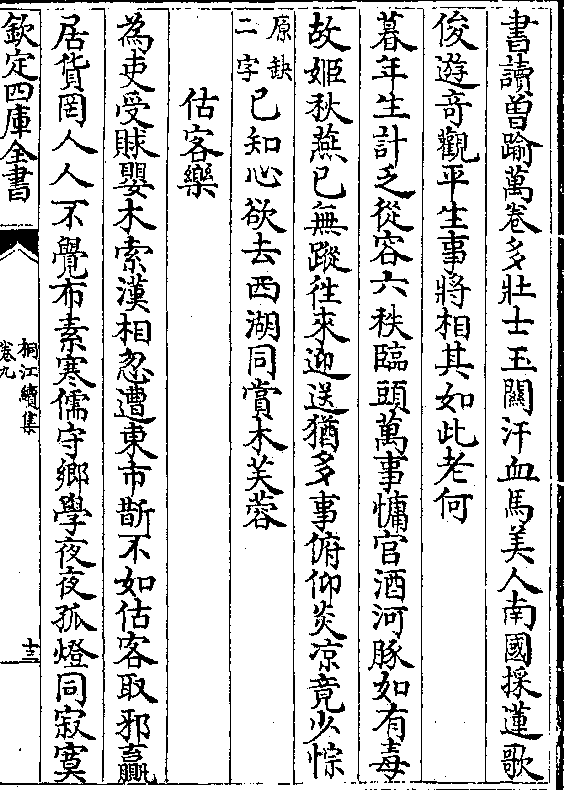 書讀曽踰萬卷多壯士玉闗汗血馬美人南國採蓮歌
俊遊竒觀平生事將相其如此老何
暮年生計乏從容六秩臨頭萬事慵官酒河豚如有毒
故姬秋燕已無蹤徃來迎送猶多事俯仰炎凉竟少悰
原缺
二字
已知心欲去西湖同賞木芙蓉
估客樂
為吏受賕嬰木索漢相忽遭東市斮不如估客取邪贏
居貨罔人人不覺布素寒儒守鄉學夜夜孤燈同寂寞
欽定四庫全書
桐江續集
卷九
十三